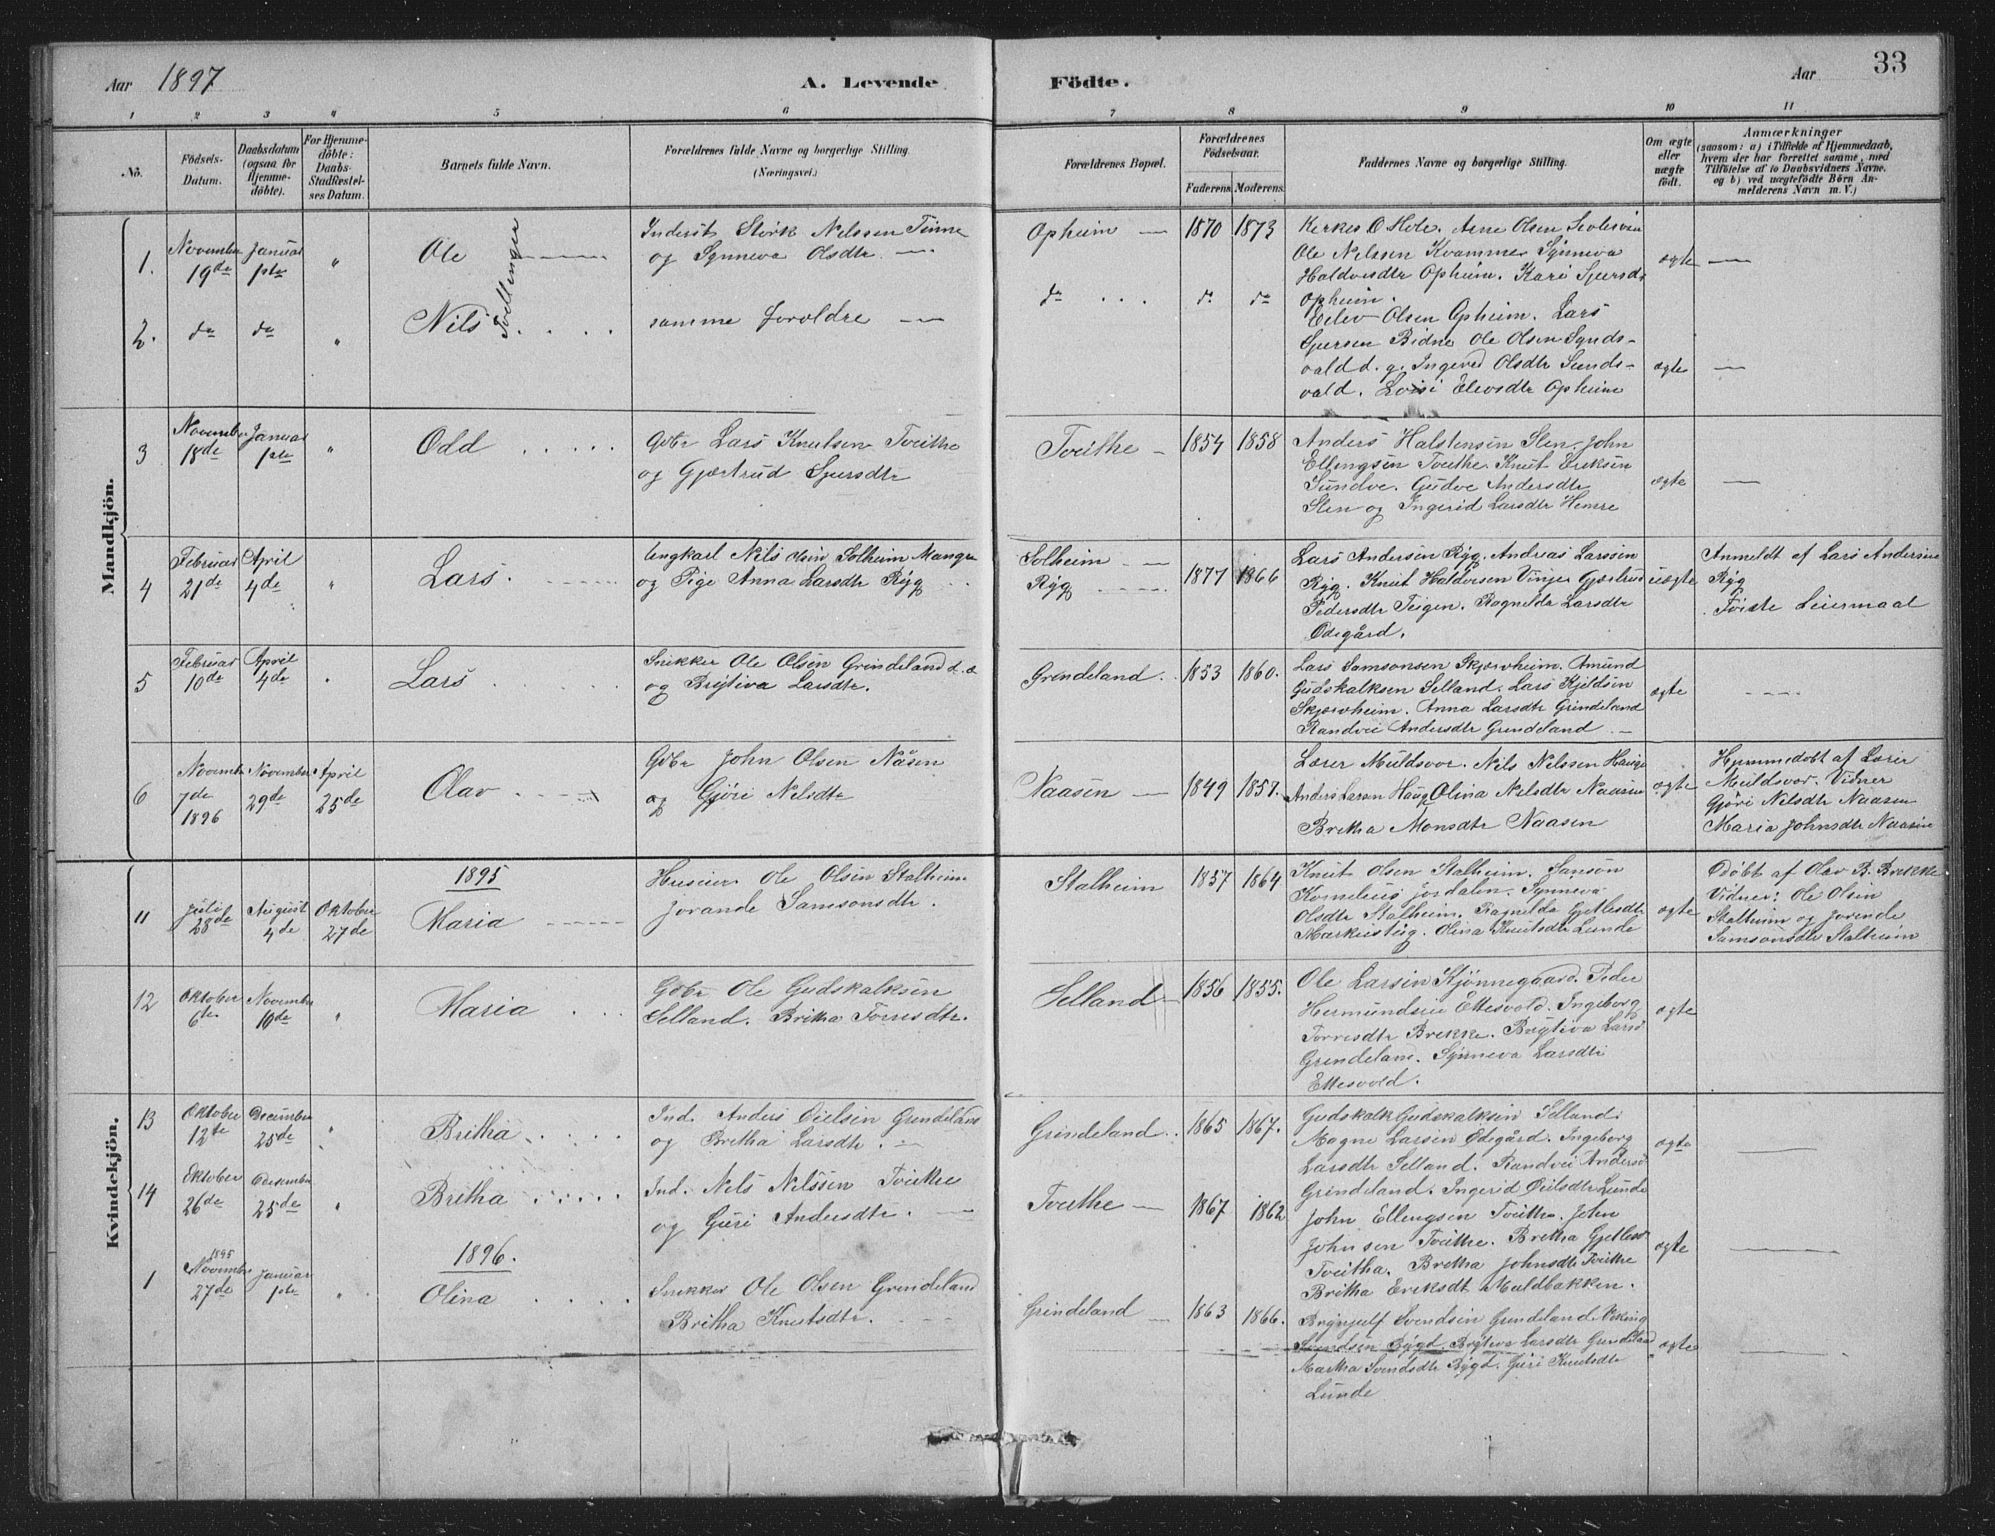 Aar 1897
A. Levende
Födte.
Aar
33
1 2 3 4 5 6 7 8 9 10 11
No.
Födsels-Datum.
Daabsdatum (ogsaa for Hjemme-döbte).
For Hjemme-döbte: Daabs-Stadfæstel-ses Datum.
Barnets fulde Navn.
Forældrenes fulde Navne og borgerlige Stilling (Næringsvei.)
Forældrenes Bopæl.
Forældrenes Födselsaar.
Faderens. Moderens.
Faddernes Navne og borgerlige Stilling.
Om ægte eller uægte födt.
Anmærkninger
(saasom: a) i Tilfælde af Hjemmedaab,
hvem der har forrettet samme, med
Tilföielse af to Daabsvidners Navne.
og b) ved uægtefödte Börn An-
melderens Navn m. V.)
Mandkjön.
1. November 19de Januar 1ste " Ole Tvillinger
Nilssen Tinne
og Synneva Olsdtr
Opheim 1870 1873
Arne Olsen
Ole Nilssen Kvamme Synneva
Haldvesdtr Opheim. Kari Sjursdtr
Opheim.
ægte
2. do do " Nils
samme foroldre
do do do
Eilev Olsen Opheim. Lars
Sjursen Bidne Ole Olsen Synds-
vald d. y. Ingered Olsdtr Sunds-
vald. Eilevsdtr Opheim
ægte
3 November 18de Januar 1ste " Odd
Gdbr Lars Knutsen Tveithe
og Gjærtrud Sjursdtr
Tveithe 1854 1858
Anders Halstensen Slen John
Ellengsen Tveithe. Knut Eriksen
Sundve. Gudve Andersdtr
Slen og Ingerid Larsdtr Hemre
ægte
4 Februar 21de April 4de " Lars.
Ungkarl Nils Olsen Solheim Mangr
og Pige Anna Larsdtr Ryg
Solheim
Ryg
1877 1866
Lars Andersen Ryg. Andreas Larssen
Ryg. Knut Haldvesen Vinje Gjertrud
Pedersdtr Teigen. Ragnilda Larsdtr
Ödegård.
uægte
Anmeldt af Lars Andersen
Ryg
Föiste Leiermaal
5 Februar 10de April 4de Lars
Snikker Ole Olsen Grindeland d. æ
og Brytiva Larsdtr.
Grendeland. 1853 1860.
Lars Samsonsen Skjærvheim. Amund
Gudskalksen Selland. Lars Kjeldsen
Skjærvheim. Anna Larsdtr Grindeland
Randvei Andersdtr Grendeland
ægte
6 November 7de 1896 November 29de April 25de Olav
Gdbr John Olsen Nåsen
og Gjöri Nilsdtr
Naasen 1849 1857.
Lærer Muldsvor. Nils Nilssen Haug
Anders Larsen Haug Olina Nilsdtr Naasen
Bretha Monsdtr Naasen
ægte
Hjemmedobt af Lærer
Muldsvor. Vidner
Gjöri Nilsdtr Naasen
Maria Johnsdtr Naasen
Kvindekjön.
1895
11 Juli 28de August 4de Oktober 27de Maria
Huseier Ole Olsen Stalheim
Jorande Samsonsdtr.
Stalheim 1857 1864
Knut Olsen Stalheim. Samson
Kornelius Jordalen. Synneva
Olsdtr Stalheim. Ragnilda Gjetlesdtr
Markustug. Olina Knutsdtr Lunde
ægte
Döbt af Olav B. Brekke
Vidner: Ole Olsen
Stalheim og Jorende
Samsonsdtr Stalheim
12 Oktober 6te November 10de " Maria
Gdbr Ole Gudskalksen
Selland. Britha Torresdtr.
Selland 1856 1855.
Ole Larsen Kjönnegaard. Peder
Hermundsen Ettesvold. Ingeborg
Torresdtr Brekke. Brytiva Larsd
Grendelan. Synneva Larsdtr
Ettesvold.
ægte
13 Oktober 12te December 25de " Britha
Ind. Anders Oielsen Grendeland
og Bretha Larsdtr.
Grindeland. 1865 1867.
Gudskalk Gudskalksen Selland.
Magne Larsen Ödegård. Ingeborg
Larsdtr Selland. Randvei Andersd
Grindeland. Ingerid Oilsdtr Lunde
ægte
14 Oktober 26de Desember 25de " Britha
Ind. Nils Nilssen Tveithe
og Guri Andersdtr.
Tveithe 1867 1862
John Ellengsen Tveithe. John
Johnsen Tveithe. Bretha Gjetlesd
Tveitha. Bretha Johnsdtr Tveithe
Britha Eriksdt Muldbakken.
ægte
1896.
1 1895 November 27de Januar 1ste " Olina
Snikker Ole Olsen Grendeland
Britha Knutsdtr.
Grindeland 1863 1866.
Brynjulf Svendsen Grendeland. Viking
Svendsen Bygd. Brytiva Larsdtr Grendeland
Martha Svendsdtr Bygd. Guri Knutsdtr
Lunde
ægte